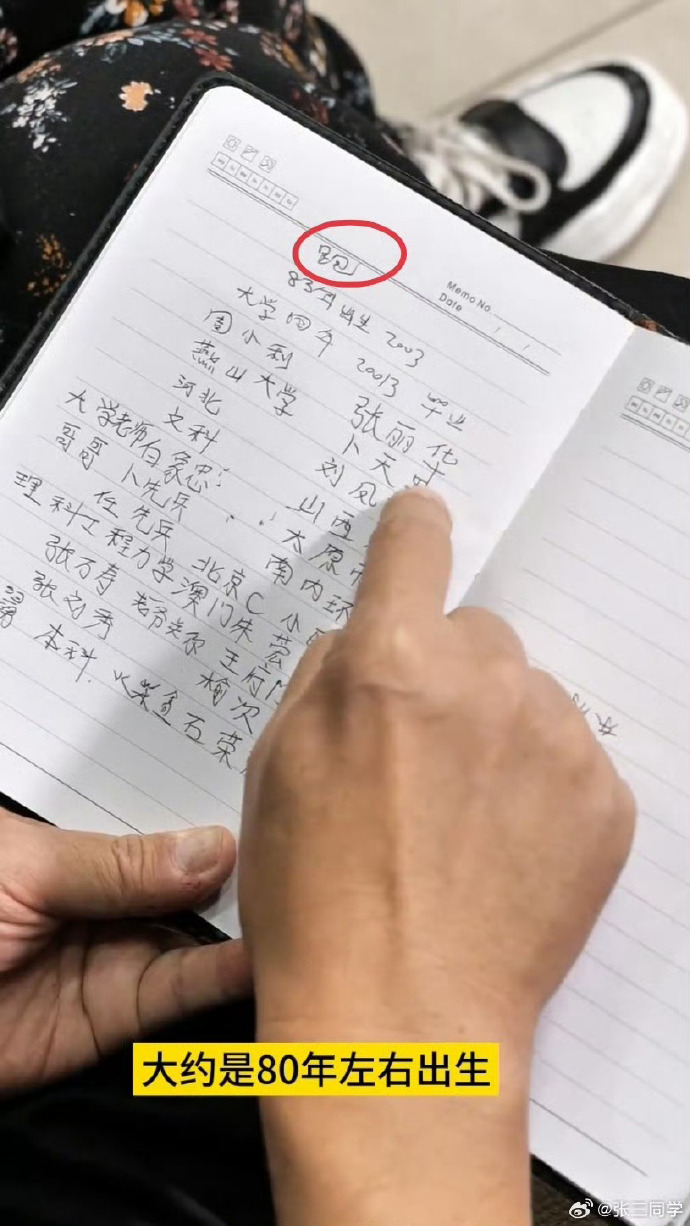 Memo No.
Date
83年出生 2003
大学四年 20013 毕业
周小利 张丽化
燕山大学 卜天
河北 刘风
文科 山西
大学老师白象忠: 太原市
哥哥 卜先兵 南内环
任先兵 北京C 小
理科工程力学澳门朱芸
张万寿 王府
张刘秀 榆次
本科. 火柴盒石荣
大约是80年左右出生
@张三同学